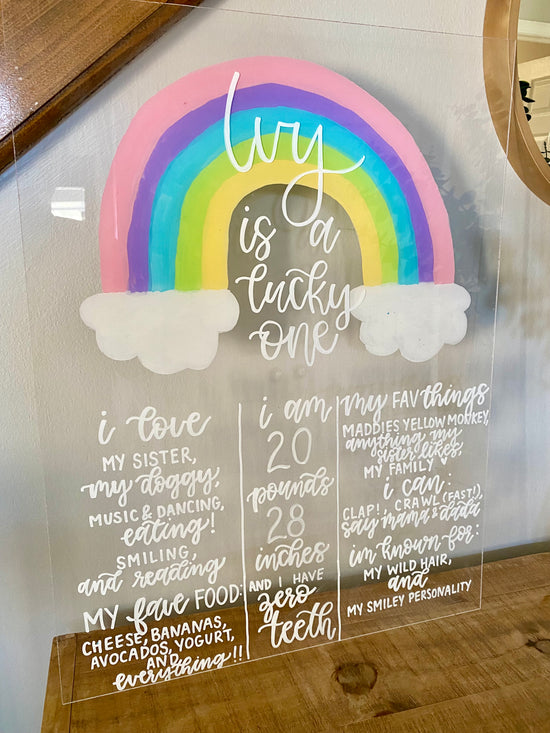 Ivy
is a
lucky
one
i love
MY SISTER,
my doggy,
MUSIC & DANCING,
eating!
SMILING,
and reading
MY fave FOOD:
CHEESE, BANANAS,
AVOCADOS, YOGURT,
AND
everything!!
i am
20
pounds
28
inches
AND I HAVE
zero
teeth
my FAV things
MADDIES YELLOW MONKEY,
anything my
sister likes,
MY FAMILY
i can:
CLAP!, CRAWL (FAST!),
say mama & dada
im known for:
MY WILD HAIR,
and
MY SMILEY PERSONALITY